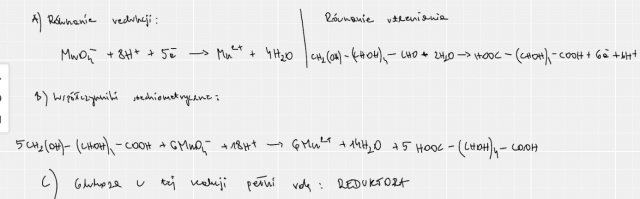 A) Równanie redukcji:
MnO₄⁻ + 8H⁺ + 5e̅ → Mn²⁺ + 4H₂O
Równanie utleniania
CH₂(OH)-(CHOH)₄-CHO + 2H₂O → HOOC-(CHOH)₄-COOH + 6e̅ + 6H⁺
B) Współczynniki stechiometryczne:
5CH₂(OH)-(CHOH)₄-COOH + 6MnO₄⁻ + 18H⁺ → 6Mn²⁺ + 14H₂O + 5 HOOC-(CHOH)₄-COOH
C) Glukoza w tej reakcji pełni rolę: REDUKTORA